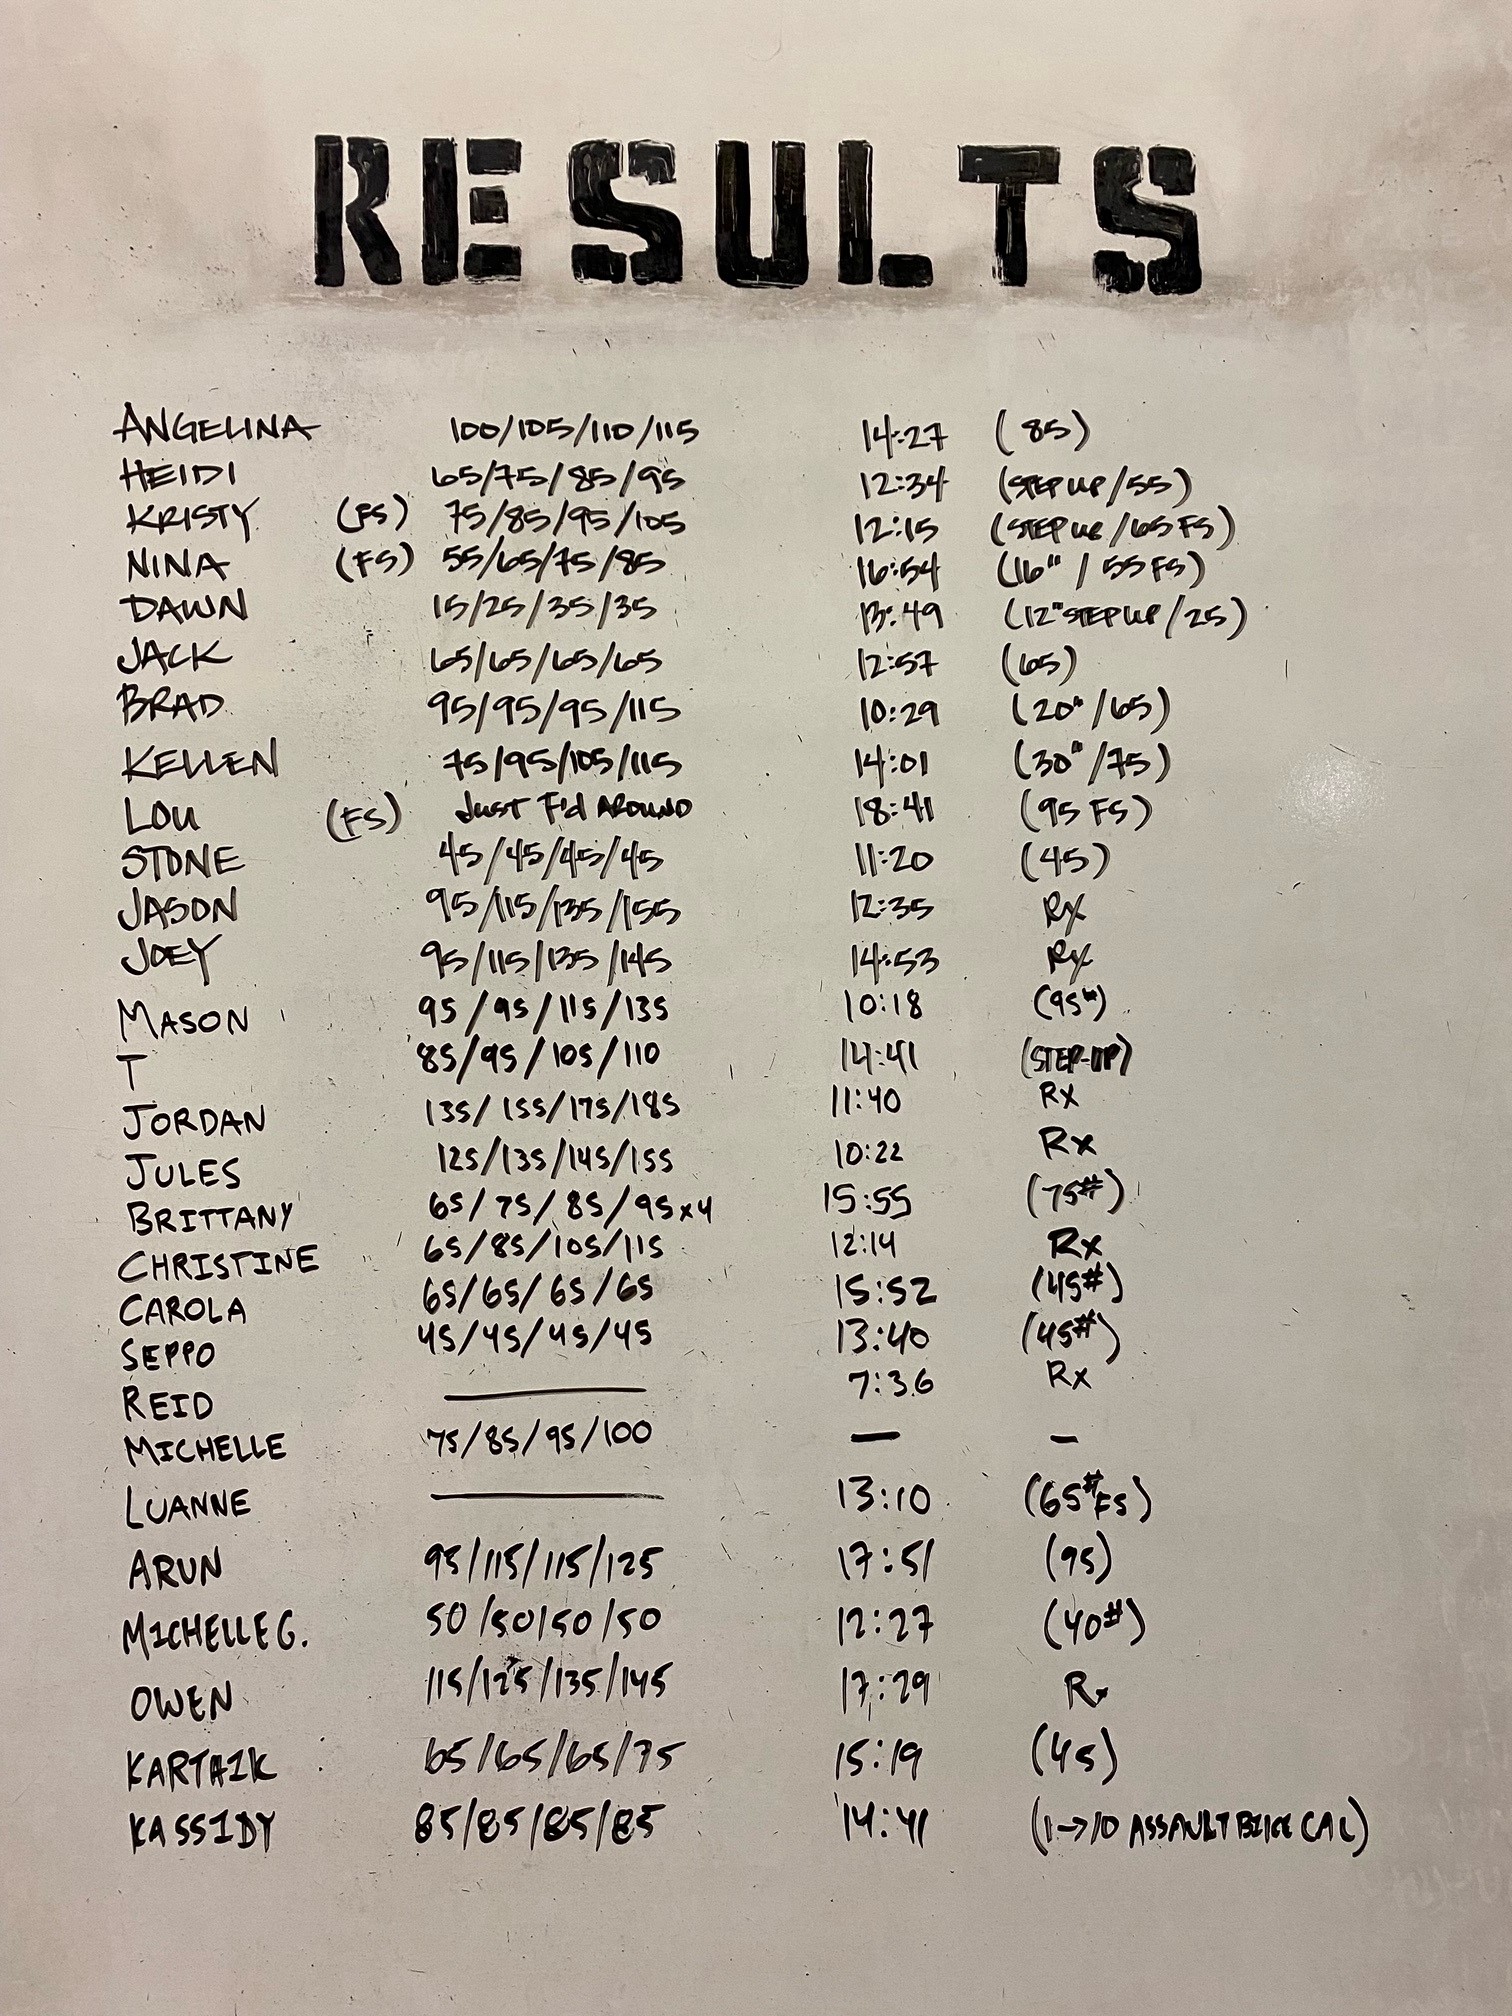 RESULTS
ANGELINA 100/105/110/115 14:27 (85)
HEIDI 65/75/85/95 12:34 (STEP UP/55)
KRISTY (FS) 75/85/95/105 12:15 (STEP UP/65 FS)
NINA (FS) 55/65/75/85 16:54 (16" / 55 FS)
DAWN 15/25/35/35 13:49 (12" STEP UP/25)
JACK 65/65/65/65 12:57 (65)
BRAD 95/95/95/115 10:29 (20"/65)
KELLEN 75/95/105/115 14:01 (30"/75)
LOU (FS) JUST F'd AROUND 18:41 (95 FS)
STONE 45/45/45/45 11:20 (45)
JASON 95/115/135/155 12:35 Rx
JOEY 95/115/135/145 14:53 Rx
MASON 95/95/115/135 10:18 (95#)
T 85/95/105/110 14:41 (STEP-UP)
JORDAN 135/155/175/185 11:40 Rx
JULES 125/135/145/155 10:22 Rx
BRITTANY 65/75/85/95x4 15:55 (75#)
CHRISTINE 65/85/105/115 12:14 Rx
CAROLA 65/65/65/65 15:52 (45#)
SEPPO 45/45/45/45 13:40 (45#)
REID — 7:36 Rx
MICHELLE 75/85/95/100 — –
LUANNE — 13:10 (65# FS)
ARUN 95/115/115/125 17:51 (95)
MICHELLE G. 50/50/50/50 12:27 (40#)
OWEN 115/125/135/145 17:29 Rx
KARTHIK 65/65/65/75 15:19 (45)
KASSIDY 85/85/85/85 14:41 (1→10 ASSAULT BIKE CAL)